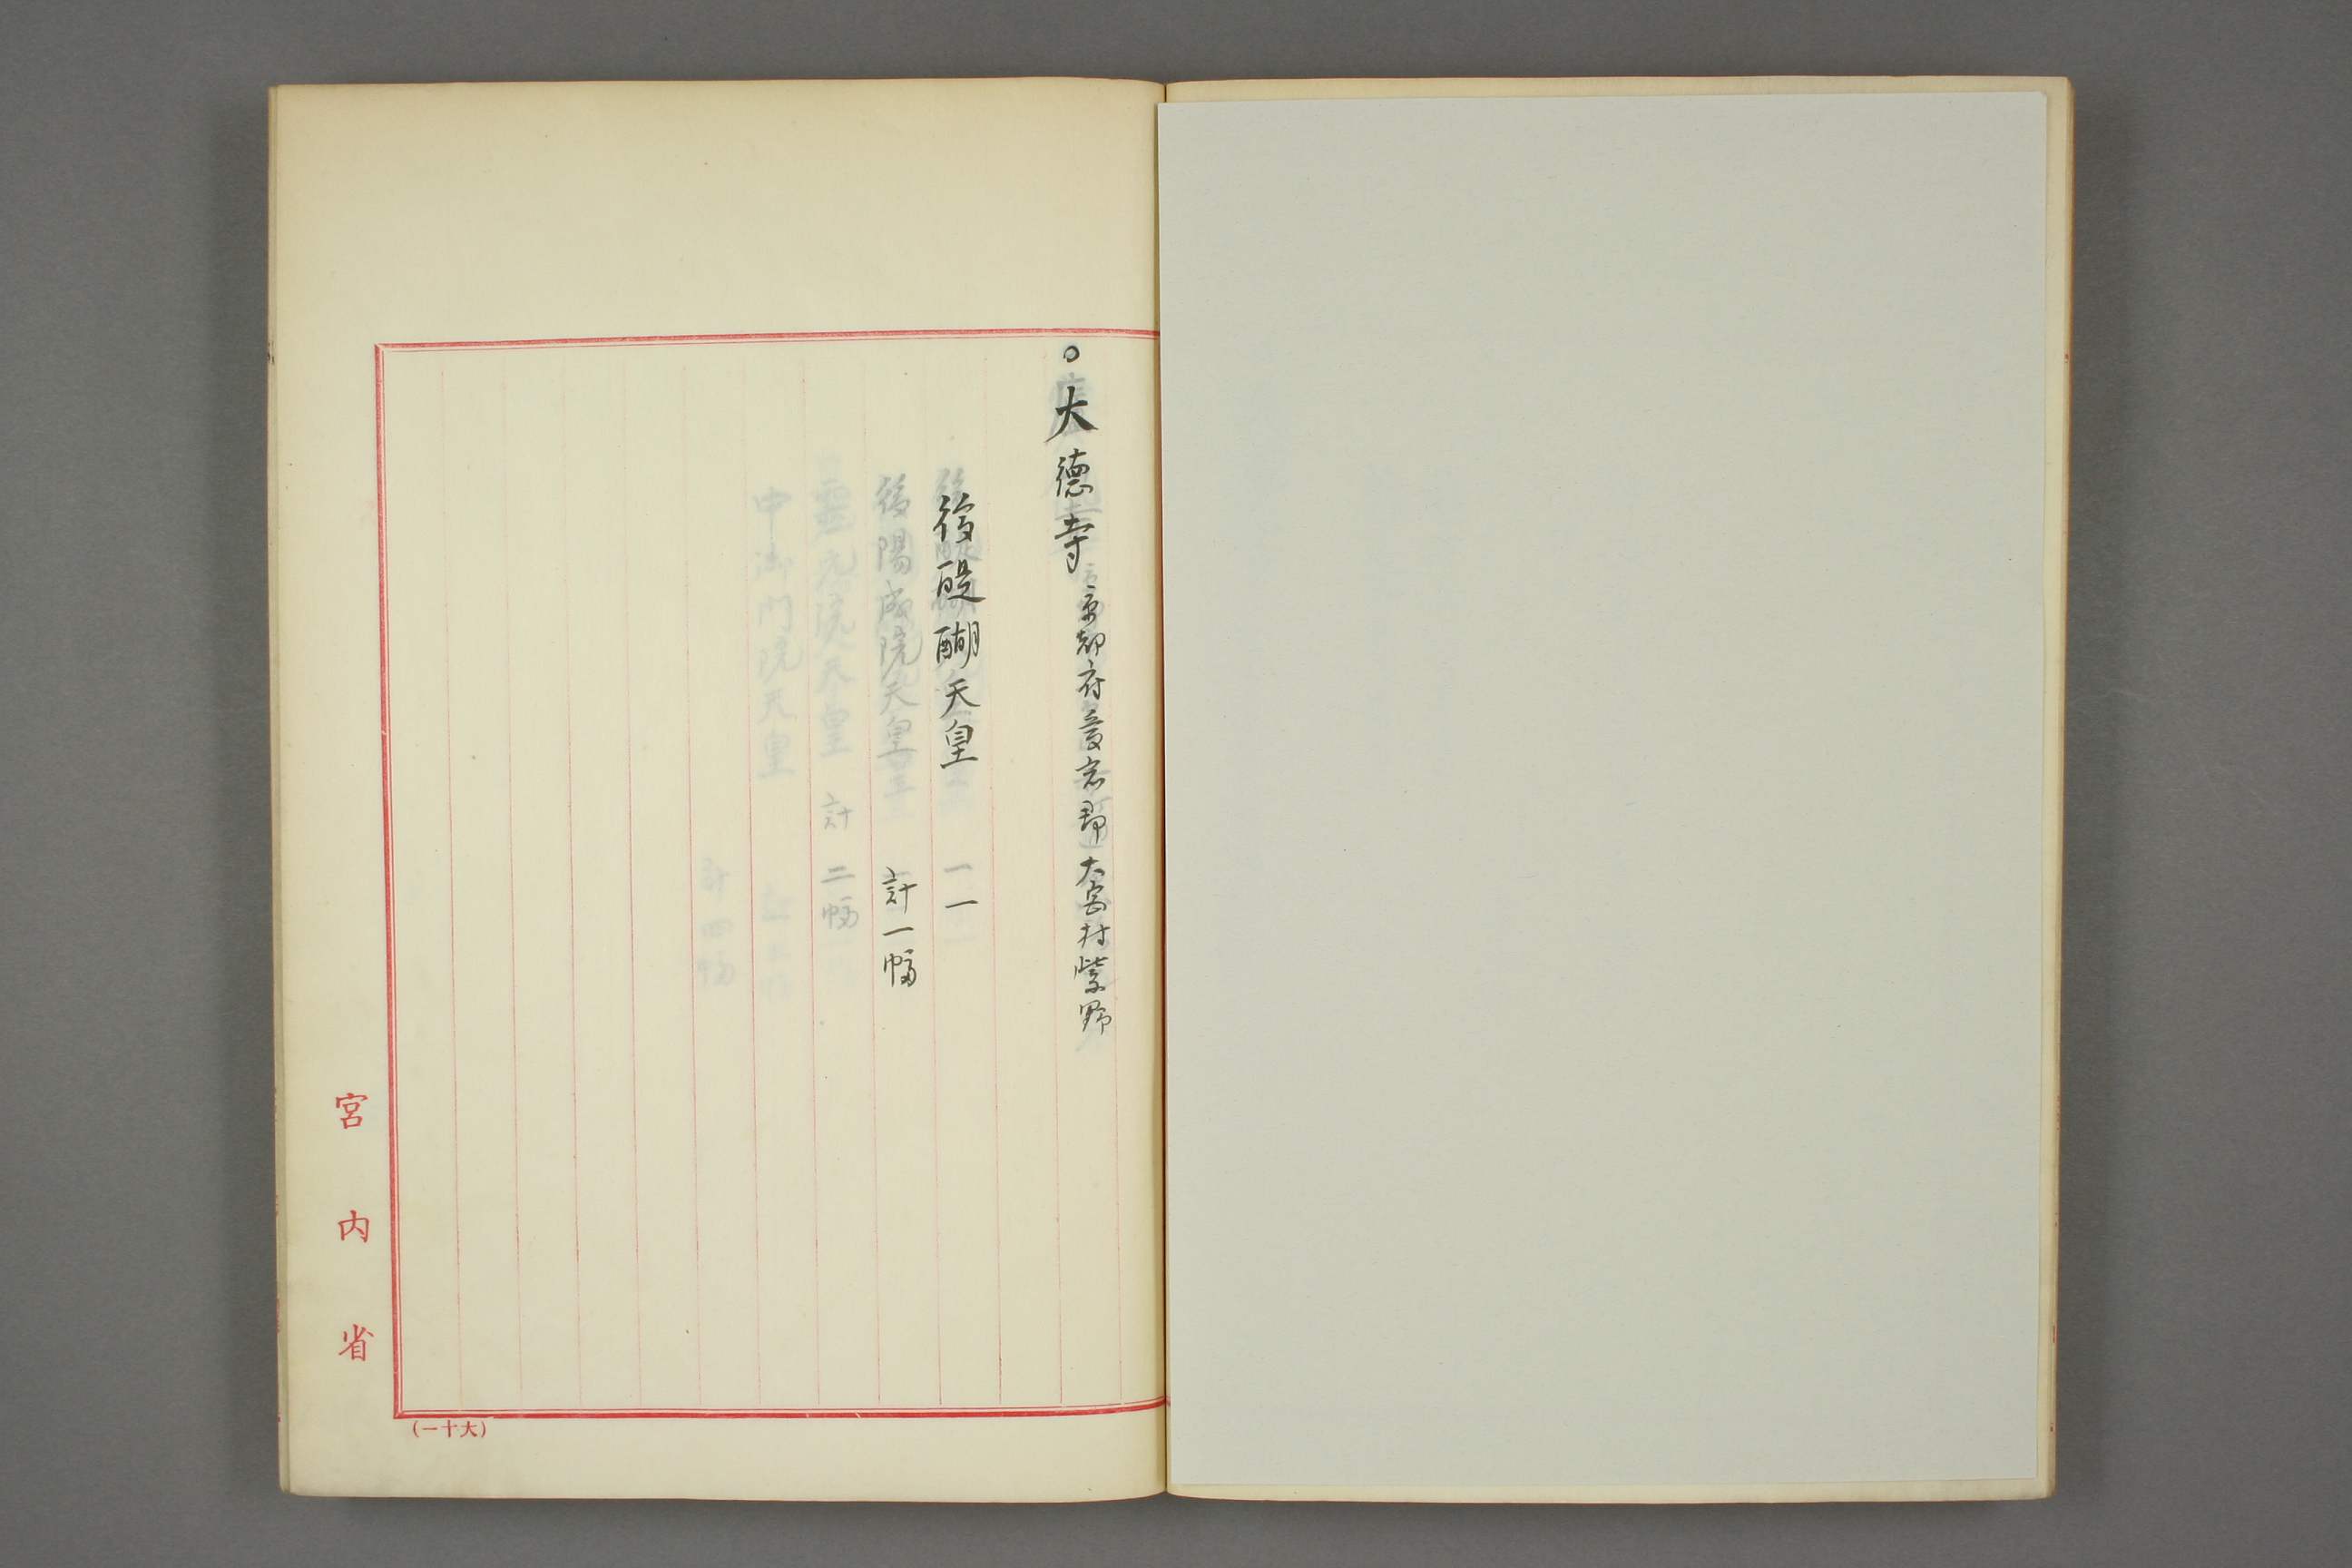 ○大德寺 京都府愛宕郡大宮村紫野
後醍醐天皇 一
計一幅
宮内省
(大十一)